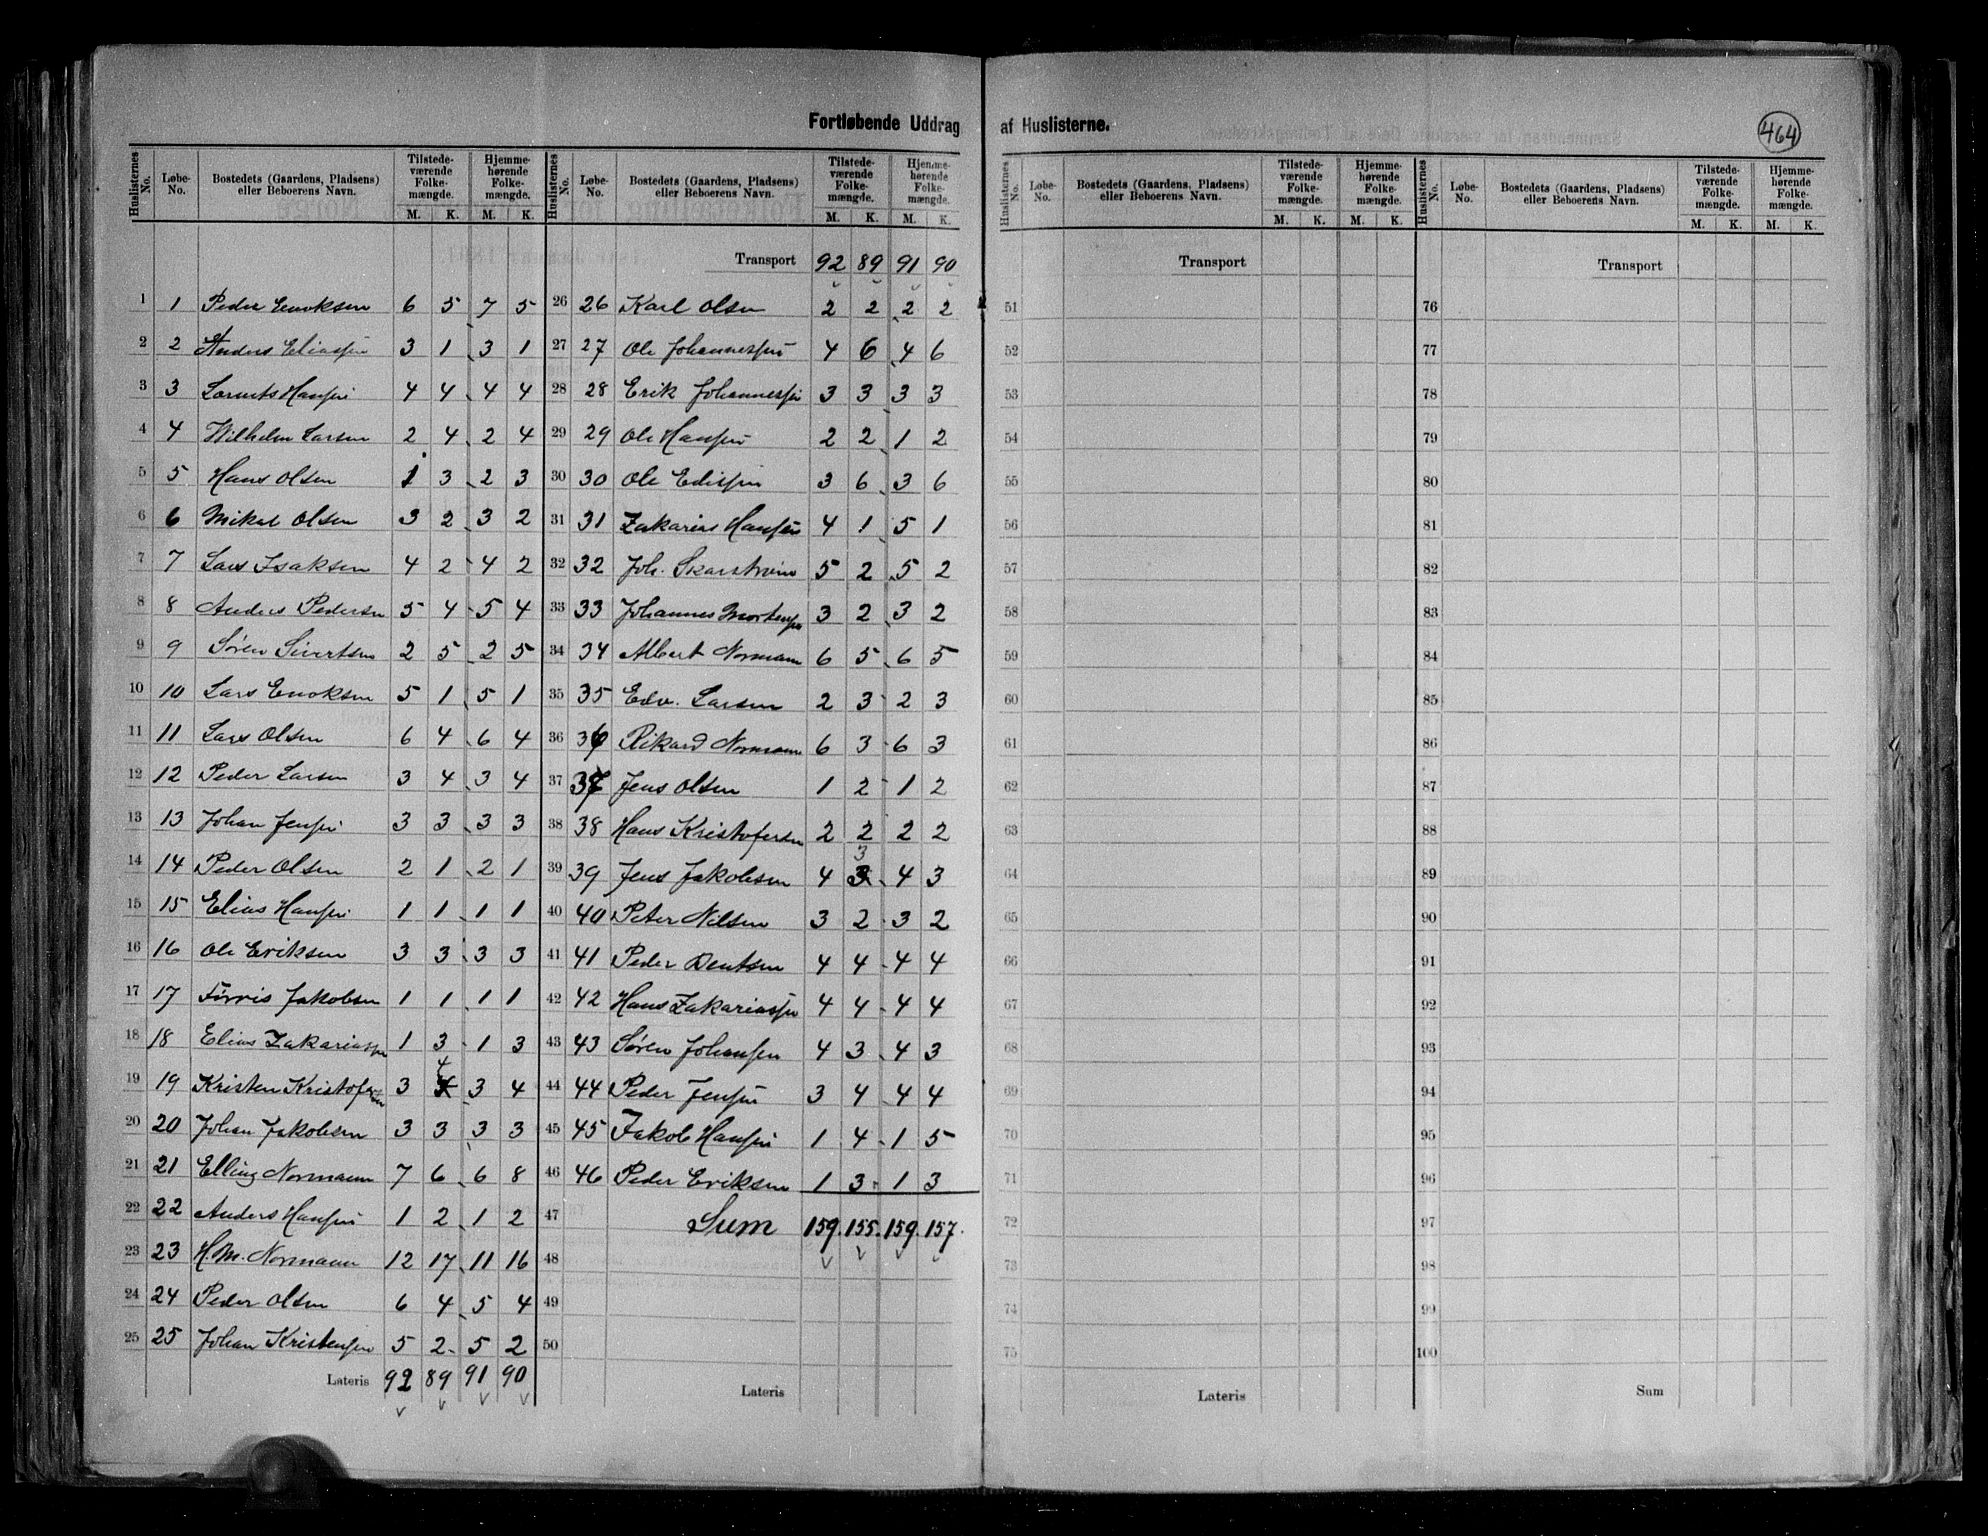 Fortløbende Uddrag af Huslisterne.
464
Huslisternes No. Løbe-No. Bostedets (Gaardens, Pladsens) eller Beboerens Navn. Tilstedeværende Folkemængde. M. K. Hjemmehørende Folkemængde. M. K.
1 1 Peder Enoksen 6 5 7 5
2 2 Anders Eliassen 3 1 3 1
3 3 Lornts Hansen 4 4 4 4
4 4 Wilhelm Larsen 2 4 2 4
5 5 Hans Olsen 1 3 2 3
6 6 Mikal Olsen 3 2 3 2
7 7 Lars Isaksen 4 2 4 2
8 8 Anders Pedersen 5 4 5 4
9 9 Søren Sivertsen 2 5 2 5
10 10 Lars Enoksen 5 1 5 1
11 11 Lars Olsen 6 4 6 4
12 12 Peder Larsen 3 4 3 4
13 13 Johan Jensen 3 3 3 3
14 14 Peder Olsen 2 1 2 1
15 15 Elias Hansen 1 1 1 1
16 16 Ole Eriksen 3 3 3 3
17 17 Jakobsen 1 1 1 1
18 18 Elias Zakariassen 1 3 1 3
19 19 Kristen Kristofersen 3 4 3 4
20 20 Johan Jakobsen 3 3 3 3
21 21 Elling Normann 7 6 6 8
22 22 Anders Hansen 1 2 1 2
23 23 H.M. Normann 12 17 11 16
24 24 Peder Olsen 6 4 5 4
25 25 Johan Kristensen 5 2 5 2
Lateris 92 89 91 90
Huslisternes No. Løbe-No. Bostedets (Gaardens, Pladsens) eller Beboerens Navn. Tilstedeværende Folkemængde. M. K. Hjemmehørende Folkemængde. M. K.
Transport 92 89 91 90
26 26 Karl Olsen 2 2 2 2
27 27 Ole Johannessen 4 6 4 6
28 28 Erik Johannessen 3 3 3 3
29 29 Ole Hansen 2 2 1 2
30 30 Ole 3 6 3 6
31 31 Zakarias Hansen 4 1 5 1
32 32 Joh. Skarstrøm 5 2 5 2
33 33 Johannes Mortensen 3 2 3 2
34 34 Albert Normann 6 5 6 5
35 35 Edv. Larsen 2 3 2 3
36 36 Rikard Normann 6 3 6 3
37 37 Jens Olsen 1 2 1 2
38 38 Hans Kristofersen 2 2 2 2
39 39 Jens Jakobsen 4 3 4 3
40 40 Peter Nilsen 3 2 3 2
41 41 Peder Bentsen 4 4 4 4
42 42 Hans Zakariassen 4 4 4 4
43 43 Søren Johansen 4 3 4 3
44 44 Peder Jensen 3 4 4 4
45 45 Jakob Hansen 1 4 1 5
46 46 Peder Eriksen 1 3 1 3
47 Sum 159 155 159 157
48
49
50
Lateris
Huslisternes No. Løbe-No. Bostedets (Gaardens, Pladsens) eller Beboerens Navn. Tilstedeværende Folkemængde. M. K. Hjemmehørende Folkemængde. M. K.
Transport
51
52
53
54
55
56
57
58
59
60
61
62
63
64
65
66
67
68
69
70
71
72
73
74
75
Lateris
Huslisternes No. Løbe-No. Bostedets (Gaardens, Pladsens) eller Beboerens Navn. Tilstedeværende Folkemængde. M. K. Hjemmehørende Folkemængde. M. K.
Transport
76
77
78
79
80
81
82
83
84
85
86
87
88
89
90
91
92
93
94
95
96
97
98
99
100
Sum